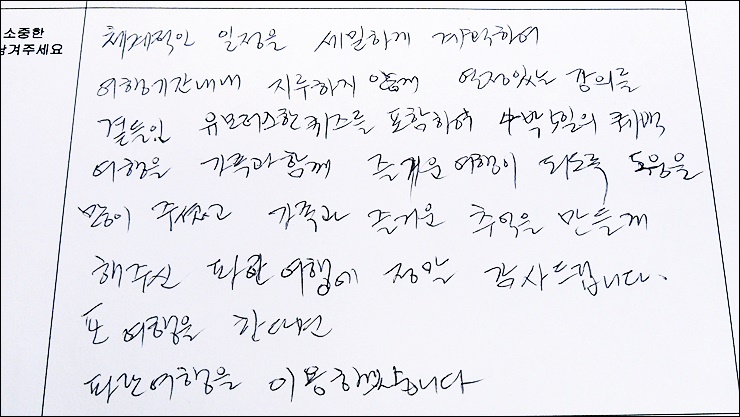 소중한
남겨주세요
체계적인 일정을 세밀하게 계획하여
여행기간내내 지루하지 않게 열정있는 강의를
곁들인 유모러스한 퀴즈를 포함하여 4박 5일의 퀘백
여행을 가족과 함께 즐거운 여행이 되도록 도움을
많이 주셨고 가족과 즐거운 추억을 만들게
해주신 파란여행에 정말 감사드립니다.
또 여행을 한다면
파란여행을 이용하겠습니다